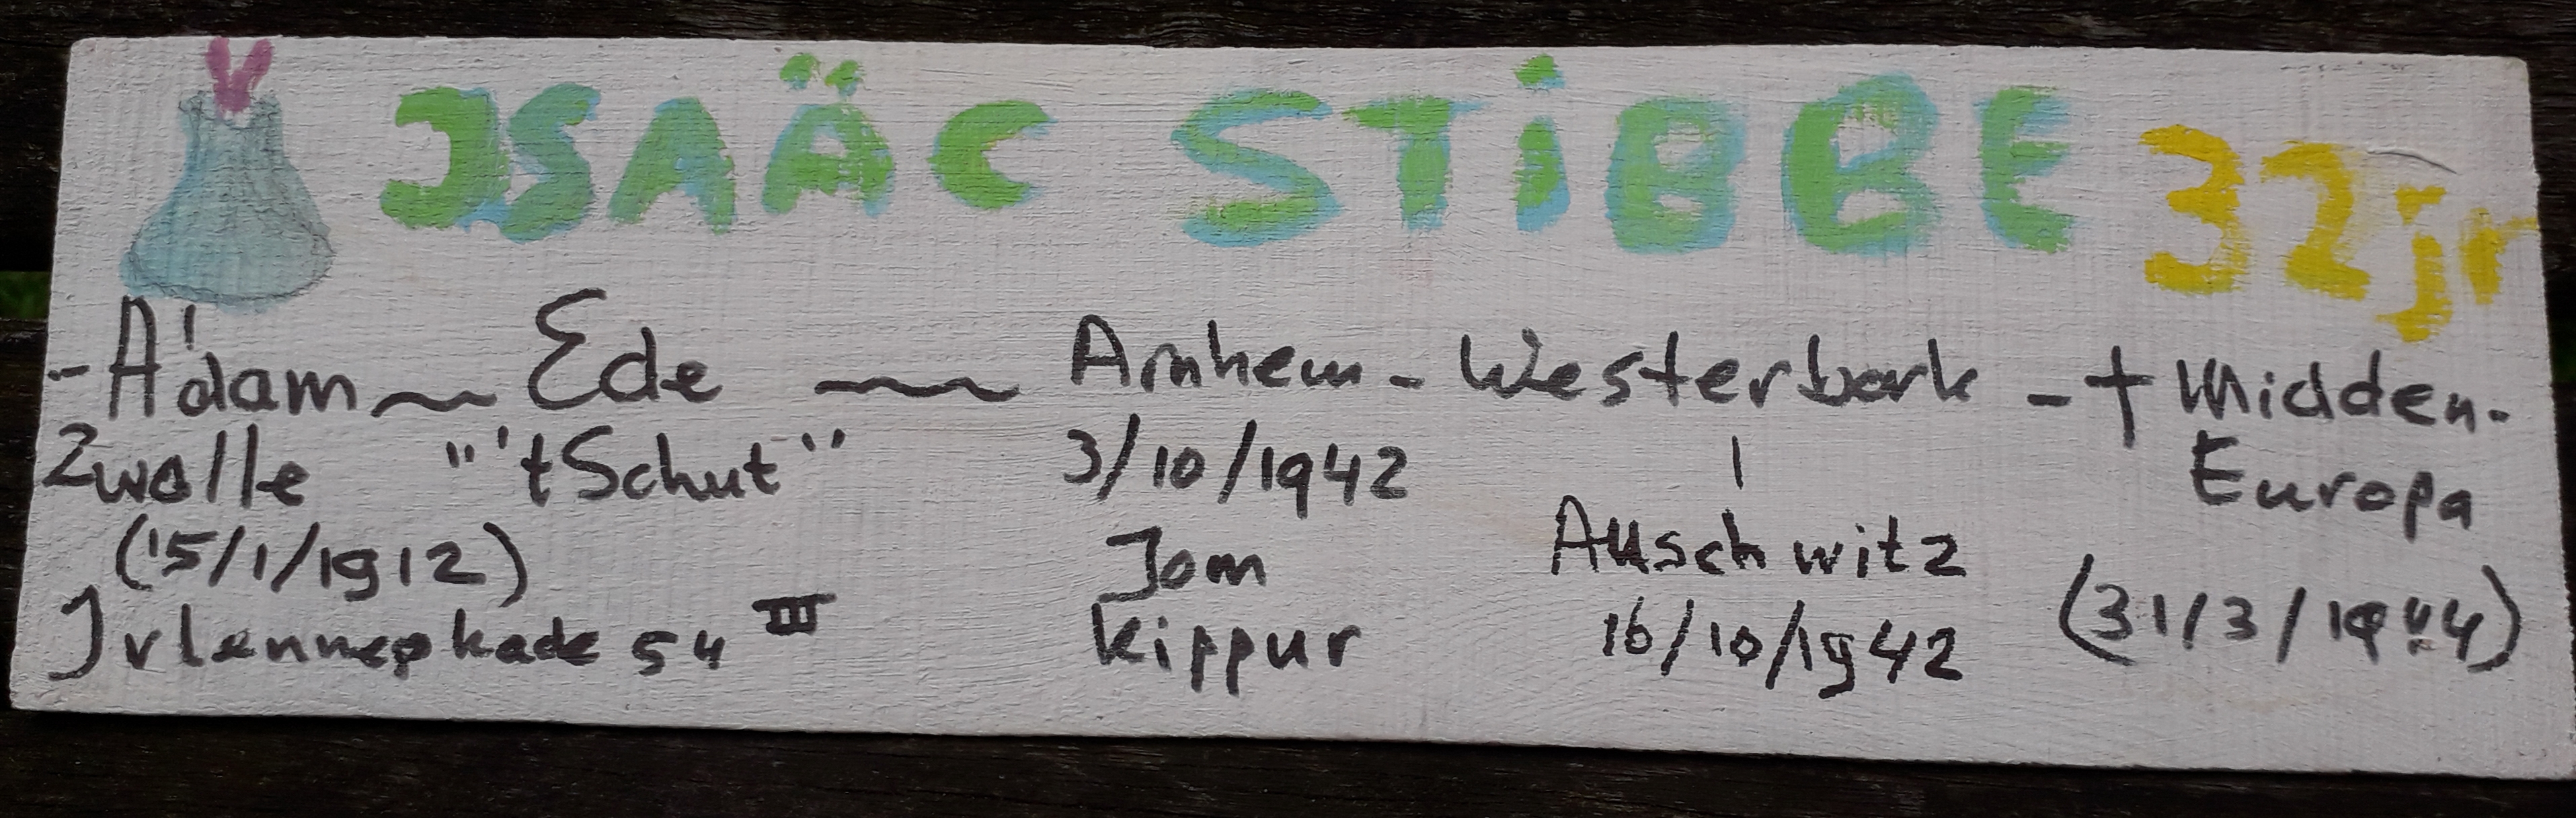 JSAÄC STiBBE 32jr
- A'dam ~ Ede ~ Arnhem - Westerbork - † Midden-
Zwolle "'t Schut" 3/10/1942 | Europa
(15/1/1912) Jom Auschwitz (31/3/1944)
Jvlennepkade 54 III kippur 16/10/1942